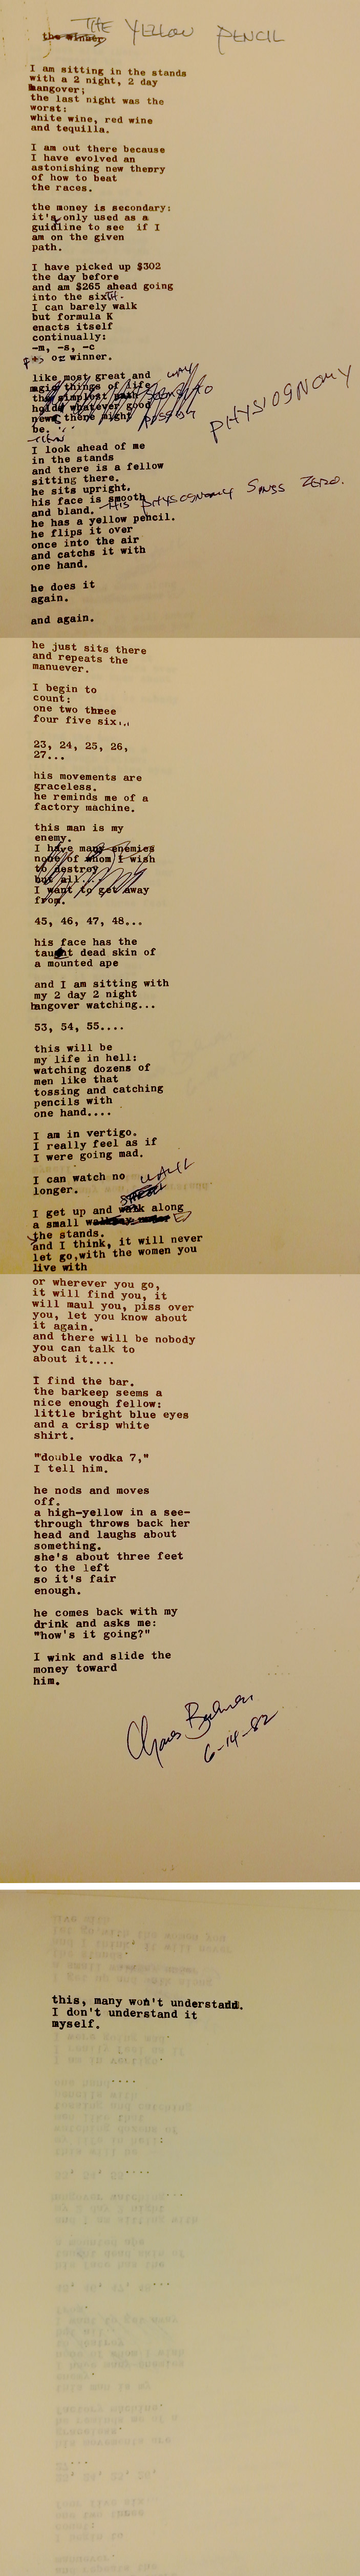 the winner THE YELLOW PENCIL
I am sitting in the stands
with a 2 night, 2 day
hangover;
the last night was the
worst:
white wine, red wine
and tequilla.
I am out there because
I have evolved an
astonishing new theory
of how to beat
the races.
the money is secondary:
it's only used as a
guidline to see if I
am on the given
path.
I have picked up $302
the day before
and am $265 ahead going
into the sixTH.
I can barely walk
but formula K
enacts itself
continually:
-m, -s, -c
o= winner.
like most great and
magic things of life
the simplest path
holds whatever good
news there might
be.
PHYSIOGNOMY
I look ahead of me
in the stands
and there is a fellow
sitting there.
he sits upright.
his face is smooth
and bland. HIS PHYSCGNOMY SINGS ZERO.
he has a yellow pencil.
he flips it over
once into the air
and catchs it with
one hand.
he does it
again.
and again.
he just sits there
and repeats the
manuever.
I begin to
count:
one two three
four five six...
23, 24, 25, 26,
27...
his movements are
graceless.
he reminds me of a
factory machine.
this man is my
enemy.
I have many enemies
none of whom I wish
to destroy
but all...
I want to get away
from.
45, 46, 47, 48...
his face has the
taunt dead skin of
a mounted ape
and I am sitting with
my 2 day 2 night
hangover watching...
53, 54, 55....
this will be
my life in hell:
watching dozens of
men like that
tossing and catching
pencils with
one hand....
I am in vertigo.
I really feel as if
I were going mad.
I can watch no
longer.
WALK
I get up and walk along
a small
the stands.
and I think, it will never
let go,with the women you
live with
or wherever you go,
it will find you, it
will maul you, piss over
you, let you know about
it again.
and there will be nobody
you can talk to
about it....
I find the bar.
the barkeep seems a
nice enough fellow:
little bright blue eyes
and a crisp white
shirt.
"double vodka 7,"
I tell him.
he nods and moves
off.
a high-yellow in a see-
through throws back her
head and laughs about
something.
she's about three feet
to the left
so it's fair
enough.
he comes back with my
drink and asks me:
"how's it going?"
I wink and slide the
money toward
him.
6-14-82
this, many won't understand.
I don't understand it
myself.